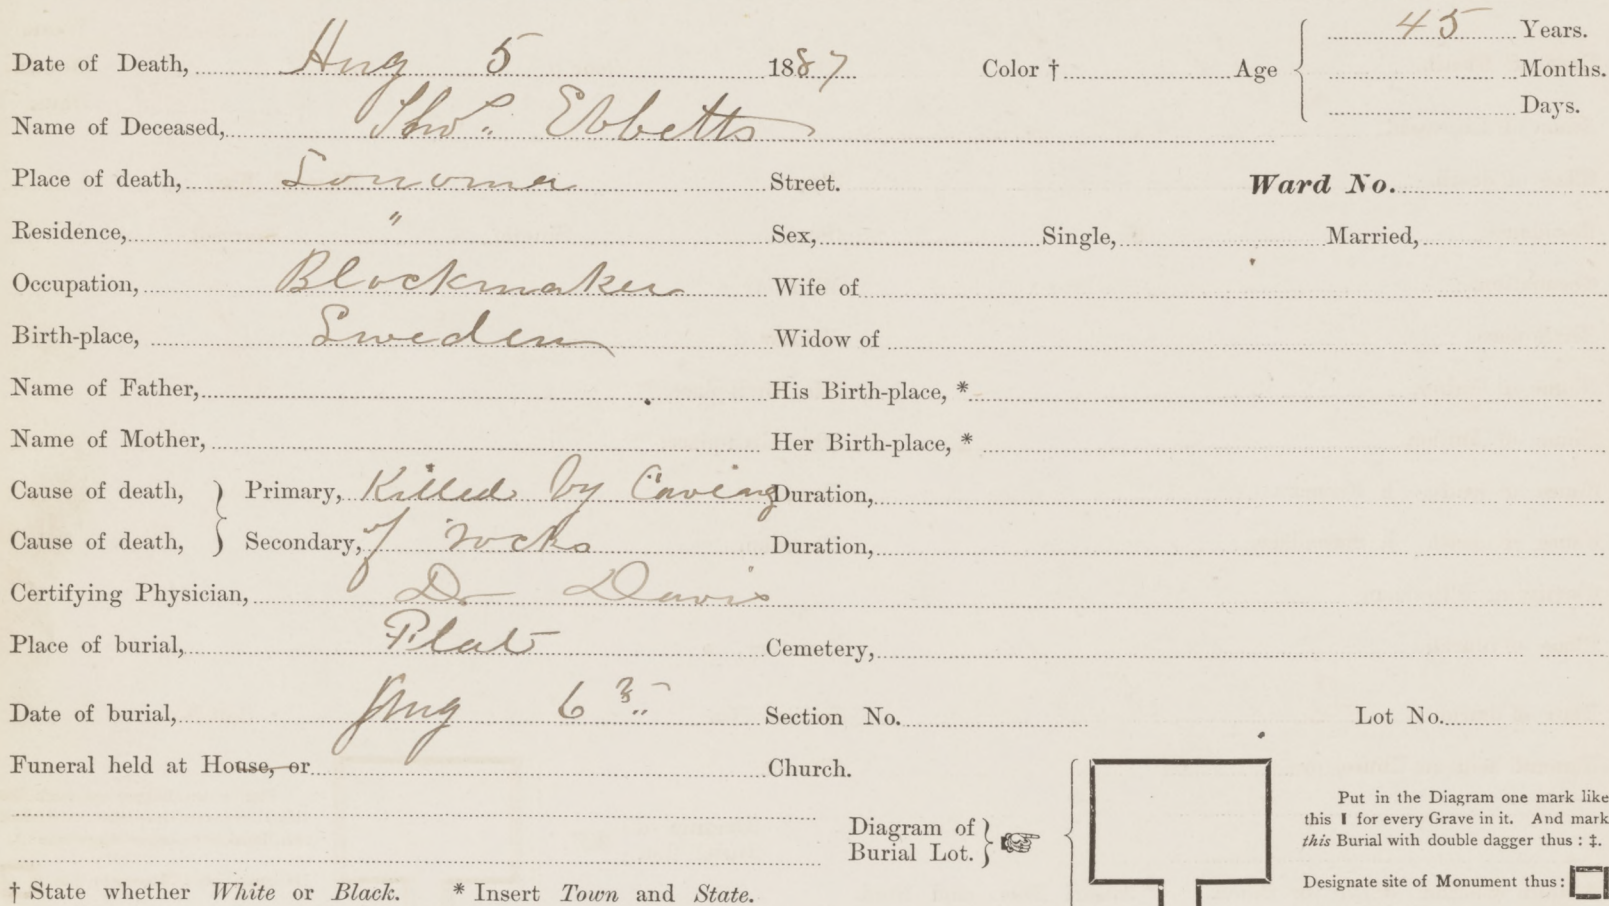 Date of Death, Aug 5 1887 Color † Age 45 Years.
Months.
Days.
Name of Deceased, Thos. Ebbetts
Place of death, Sonoma Street. Ward No.
Residence, " Sex, Single, Married,
Occupation, Blockmaker Wife of
Birth-place, Sweden Widow of
Name of Father, His Birth-place, *
Name of Mother, Her Birth-place, *
Cause of death, Primary, Killed by Caving Duration,
Cause of death, Secondary, of rocks Duration,
Certifying Physician, Dr Davis
Place of burial, Plat Cemetery,
Date of burial, Aug 6 Section No. Lot No.
Funeral held at House, or Church.
Diagram of
Burial Lot.
Put in the Diagram one mark like
this I for every Grave in it. And mark
this Burial with double dagger thus : ‡.
Designate site of Monument thus :
† State whether White or Black. * Insert Town and State.